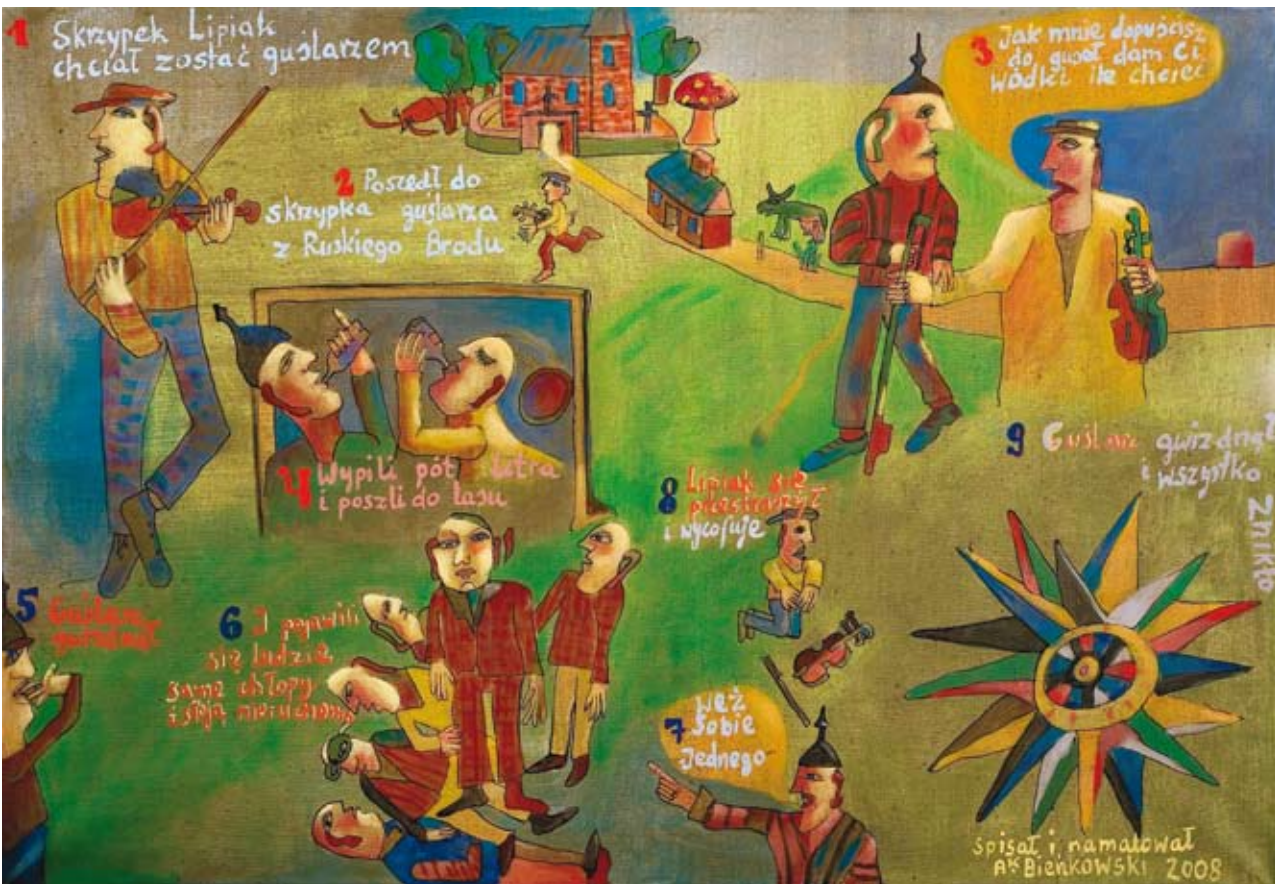 1 Skrzypek Lipiak
chciał zostać guślarzem
2 Poszedł do
skrzypka guślarza
z Ruskiego Brodu
3 Jak mnie dopuścisz
do guseł dam Ci
wódki ile chcesz
4 Wypili pół litra
i poszli do lasu
5 Guślarz
gwizdnął
6 I pojawili
się ludzie
same chłopy
i stoją nieruchomo
7 Weź
sobie
jednego
8 Lipiak się
przestraszył
i wycofuje
9 Guślarz gwizdnął
i wszystko
znikło
spisał i namalował
A. Bieńkowski 2008